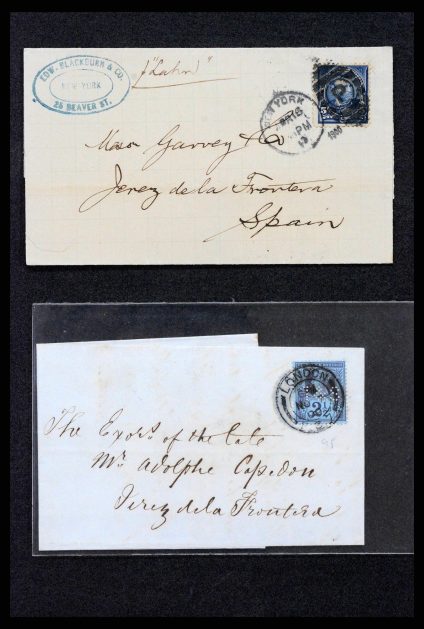 EDW. BLACKBURN & CO.
NEW YORK
25 BEAVER ST.
p "Lahn"
NEW YORK
PM
1900
Messrs Garvey & Co
Jerez de la Frontera
Spain
LONDON
NO
2½
95
The Exors of the late
Mr. Adolphe Capdon
Jerez de la Frontera